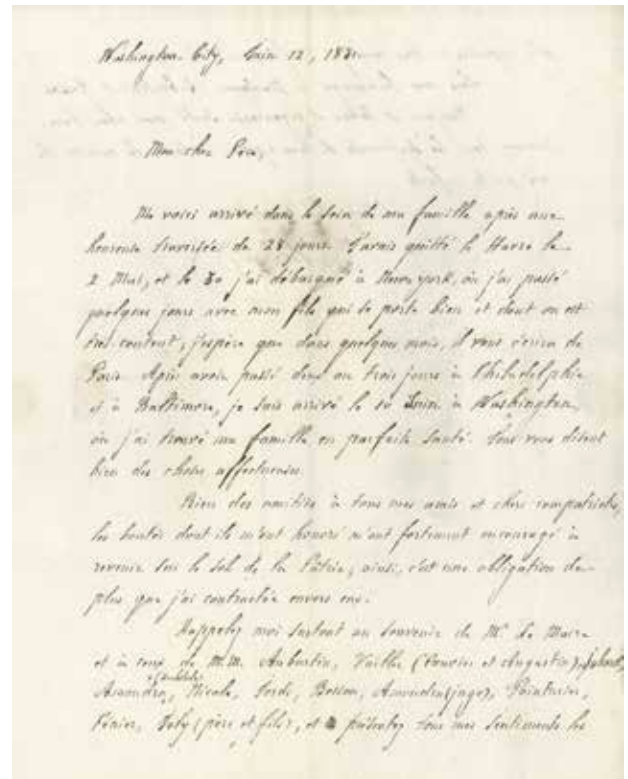 Washington City, Juin 12, 183
Mon cher Père,
Me voici arrivé dans le sein de ma famille après une
heureuse traversée de 28 jours. J'avais quitté le Havre le
2 Mai, et le 30 j'ai débarqué à New-york, où j'ai passé
quelques jours avec mon fils qui se porte bien et dont on est
très content; j'espère que dans quelques mois, il vous écrira de
Paris. Après avoir passé deux ou trois jours à Philadelphie
et à Baltimore, je suis arrivé le 10 Juin à Washington,
où j'ai trouvé ma famille en parfaite santé. Tous vous disent
bien des choses affectueuses.
Bien des amitiés à tous mes amis et chers compatriotes,
les bontés dont ils m'ont honoré m'ont fortement encouragé à
revenir sur le sol de la Patrie; ainsi, c'est une obligation de
plus que j'ai contractée envers eux.
Rappelez moi surtout au souvenir de Mr. Le Maire
et à ceux de M.M. Aubertin, (Xavier et Augustin),
Nicole, Besson, Amoudru (juge),
Joly (père et fils), et présentez tous mes sentiments les